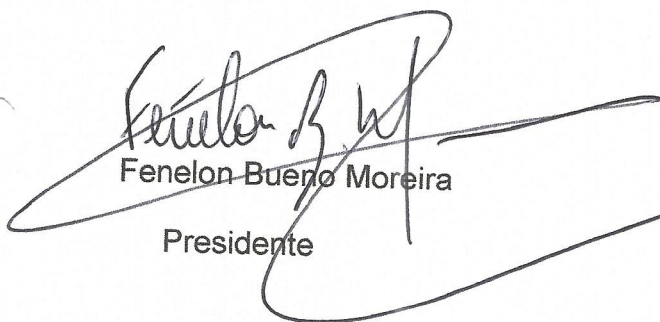 Fenelon B. M
Fenelon Bueno Moreira
Presidente